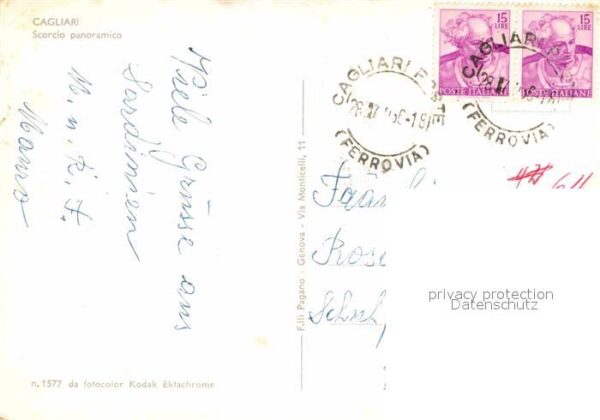 CAGLIARI
Scorcio panoramico
Viele Grüsse aus
Sardinien
M. n. K. F.
Mauro
n. 1577 da fotocolor Kodak Ektachrome
F.lli Pagano - Genova - Via Monticelli, 11
15
LIRE
POSTE ITALIANE
15
LIRE
POSTE ITALIANE
CAGLIARI
(FERROVIA)
CAGLIARI
(FERROVIA)
Rose
privacy protection
Datenschutz